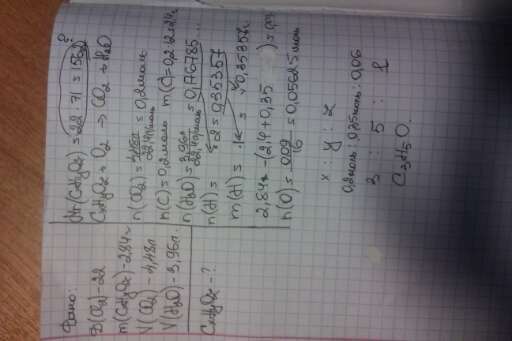 Дано:
D(Cl₂)-22
m(CxHyOz)-2,84г
V(CO₂)-4,48л
V(H₂O)-3,96л.
CxHyOz-?
Mr(CxHyOz)=22·71=1562 ?
CxHyOz+O₂ → CO₂+H₂O
n(CO₂)=4,48л/22,4л/моль=0,2моль
n(C)=0,2моль m(C)=0,2·12=2,4г
n(H₂O)=3,96л/22,4л/моль=0,176785...
n(H)= ·2=0,35357
m(H)= ·1г= 0,35357г
2,84г-(2,4+0,35 )=0,09г
n(O)=0,09/16=0,05625моль
x : y : z
0,2моль:0,35моль:0,06
3 : 5 : 1
C₃H₅O